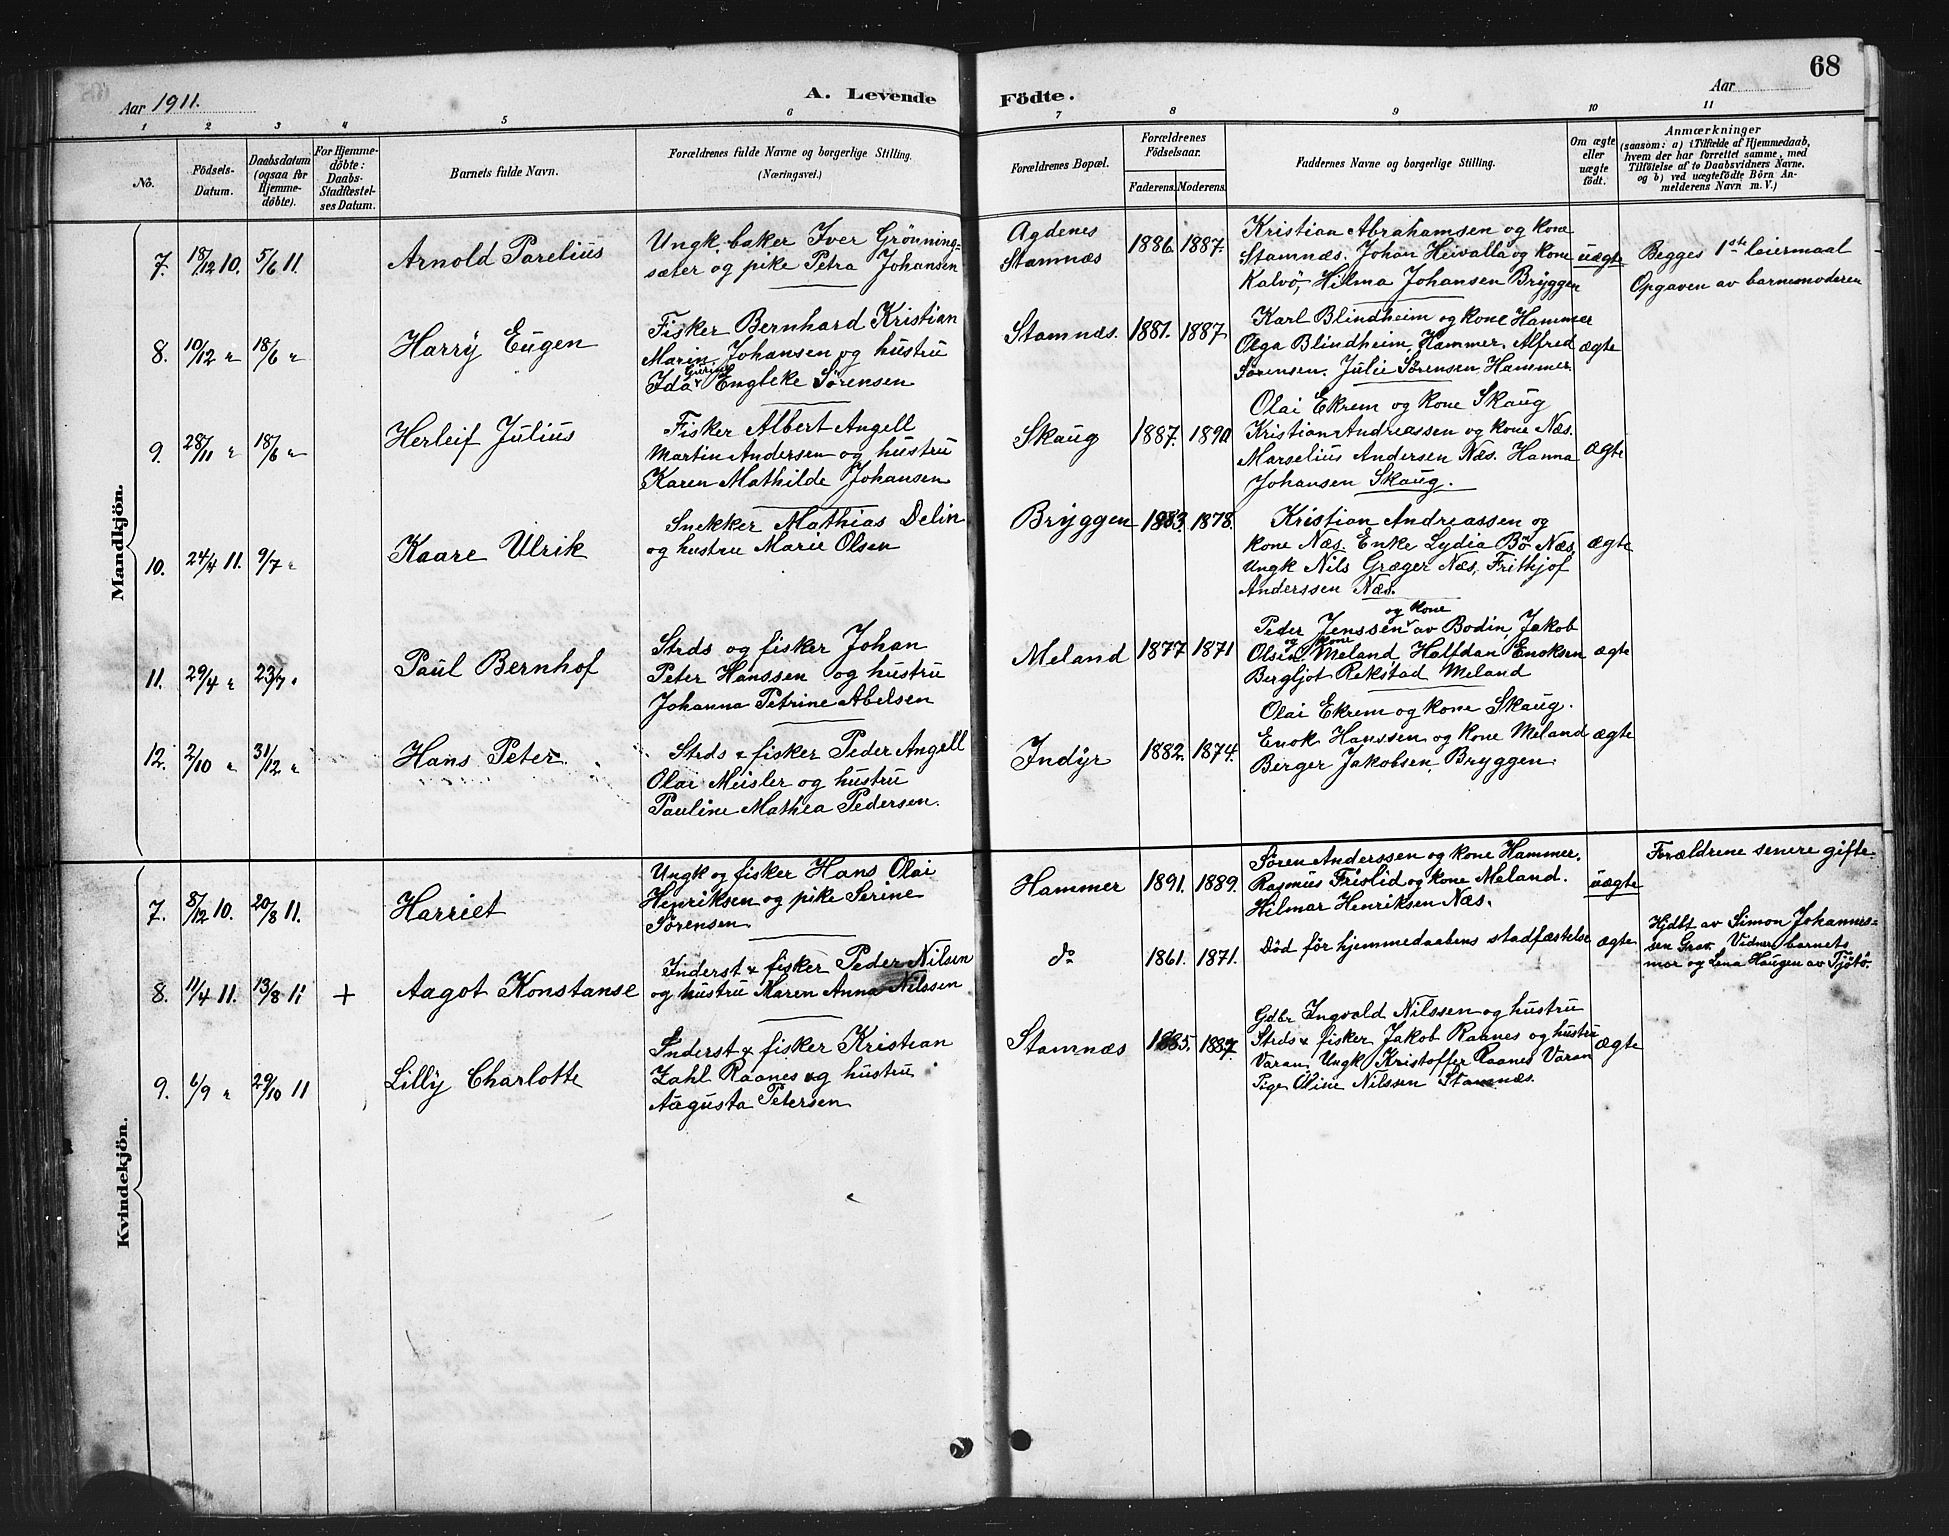 Aar 1911.
A. Levende
Födte.
Aar
68
1 2 3 4 5 6 7 8 9 10 11
No.
Födsels-
Datum.
Daabsdatum
(ogsaa for
Hjemme-
döbte).
For Hjemme-
döbte:
Daabs-
Stadfæstel-
ses Datum.
Barnets fulde Navn.
Forældrenes fulde Navne og borgerlige Stilling.
(Næringsvei.)
Forældrenes Bopæl.
Forældrenes
Födselsaar.
Faderens. Moderens.
Faddernes Navne og borgerlige Stilling.
Om ægte
eller
uægte
født.
Anmærkninger
(saasom: a) i Tilfælde af Hjemmedaab,
hvem der har forrettet samme, med
Tilföielse af to Daabsvidners Navne.
og b) ved uægtefödte Börn An-
melderens Navn m. V.)
Mandkjön.
7. 18/12 10. 5/6 11.
Arnold Parelius
Ungk. baker Iver Grønning-
sæter og pike Petra Johansen
Agdenes
Stamnæs
1886 1887.
Kristian Abrahamsen og kone
Stamnæs. Johan Heivalla og kone
Kalvö, Hilma Johansen Bryggen
uægte
Begges 1ste leiermaal
Opgaven av barnemoderen
8. 10/12 " 18/6 "
Harry Eugen
Fisker Bernhard Kristian
Marin Johansen og hustru
Ida Engleke Sørensen
Stamnæs. 1881. 1887
Karl Blindheim og kone Hammer
Olga Blindheim, Hammer. Alfred
Sørensen. Julie Sørensen, Hammer.
ægte
9. 28/11 " 18/6 "
Herleif Julius
Fisker Albert Angell
Martin Andersen og hustru
Karen Mathilde Johansen
Skaug 1887. 1890
Olai Ekrem og kone Skaug
Kristian Andreassen og kone Næs.
Marselius Andersen Næs. Hanna
Johansen Skaug.
ægte
10. 24/4 11. 9/7 "
Kaare Ulrik
Snekker Mathias Delin
og hustru Marie Olsen
Bryggen 1883. 1878.
Kristian Andreassen og
kone Næs. Enke Lydia Bö Næs,
Ungk Nils Græger Næs, Frithjof
Anderssen Næs.
ægte
11. 29/4 " 23/7 "
Paul Bernhof
Strds og fisker Johan
Peter Hanssen og hustru
Johanna Petrine Abelsen
Meland 1877 1871
og kone
Peder Jenssen av Bodin, Jakob
og kone
Olsen, Meland, Halfdan Enoksen
Bergljot Rekstad Meland
ægte
12. 2/10 " 31/12 "
Hans Peter
Strds & fisker Peder Angell
Olai Meisler og hustru
Pauline Mathea Pedersen.
Indyr 1882. 1874.
Olai Ekrem og kone Skaug.
Enok Hanssen og kone Meland
Berger Jakobsen, Bryggen.
ægte
Kvindekjön.
7. 8/12 10. 20/8 11.
Harriet
Ungk og fisker Hans Olai
Henriksen og pike Serine
Sørensen
Hammer 1891. 1889.
Søren Anderssen og kone Hammer.
Rasmus Friolid og kone Meland.
Hilmar Henriksen Næs.
uægte
Forældrene senere gifte.
8. 11/4 11. 13/8 11 +
Aagot Konstanse
Inderst & fisker Peder Nilsen
og hustru Maren Anna Nilssen
do 1861. 1871.
Död för hjemmedaabens stadfæstelse
ægte
Hjdbt av Simon Johannes-
sen Grav. Vidner barnets
mor og Lena Haugen av Tjötö.
9. 6/9 " 29/10 11
Lilly Charlotte
Inderst & fisker Kristian
Zahl Raanes og hustru
Augusta Petersen
Stamnæs 1885. 1887
Gdbr Ingvald Nilssen og hustru
Strds & fisker Jakob Raanes og hustru
Varan, Ungk Kristoffer Raanes Varan
Pige Oline Nilssen Stamnæs.
ægte